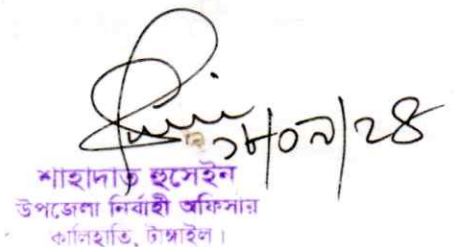 ১৮/০৯/২৪
শাহাদাত হুসেইন
উপজেলা নির্বাহী অফিসার
কালিহাতি, টাঙ্গাইল।